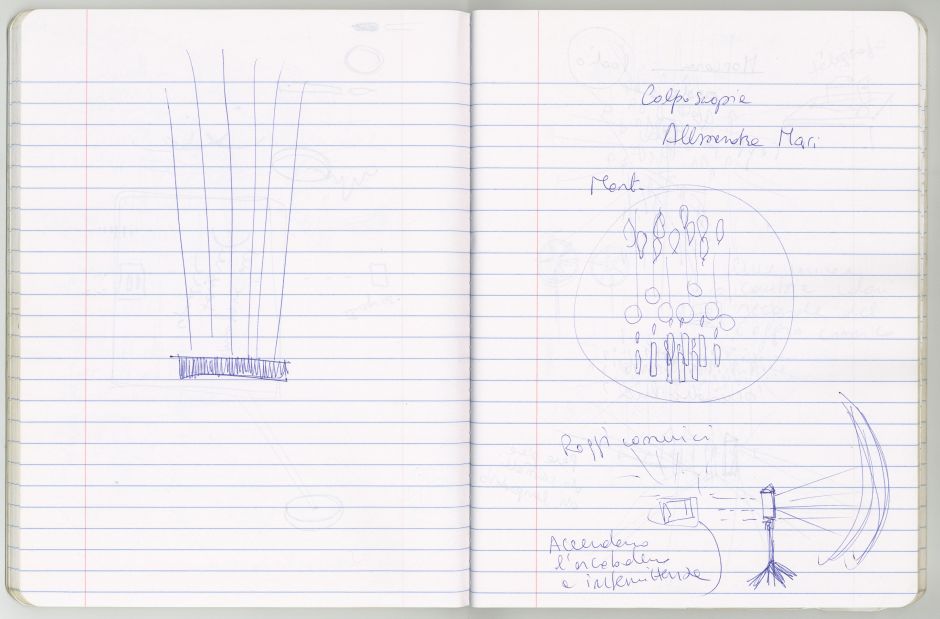 Colposcopie
Alessandra Mari
Mont.
Raggi cosmici
Accendono
l'arcobaleno
a intermittenza